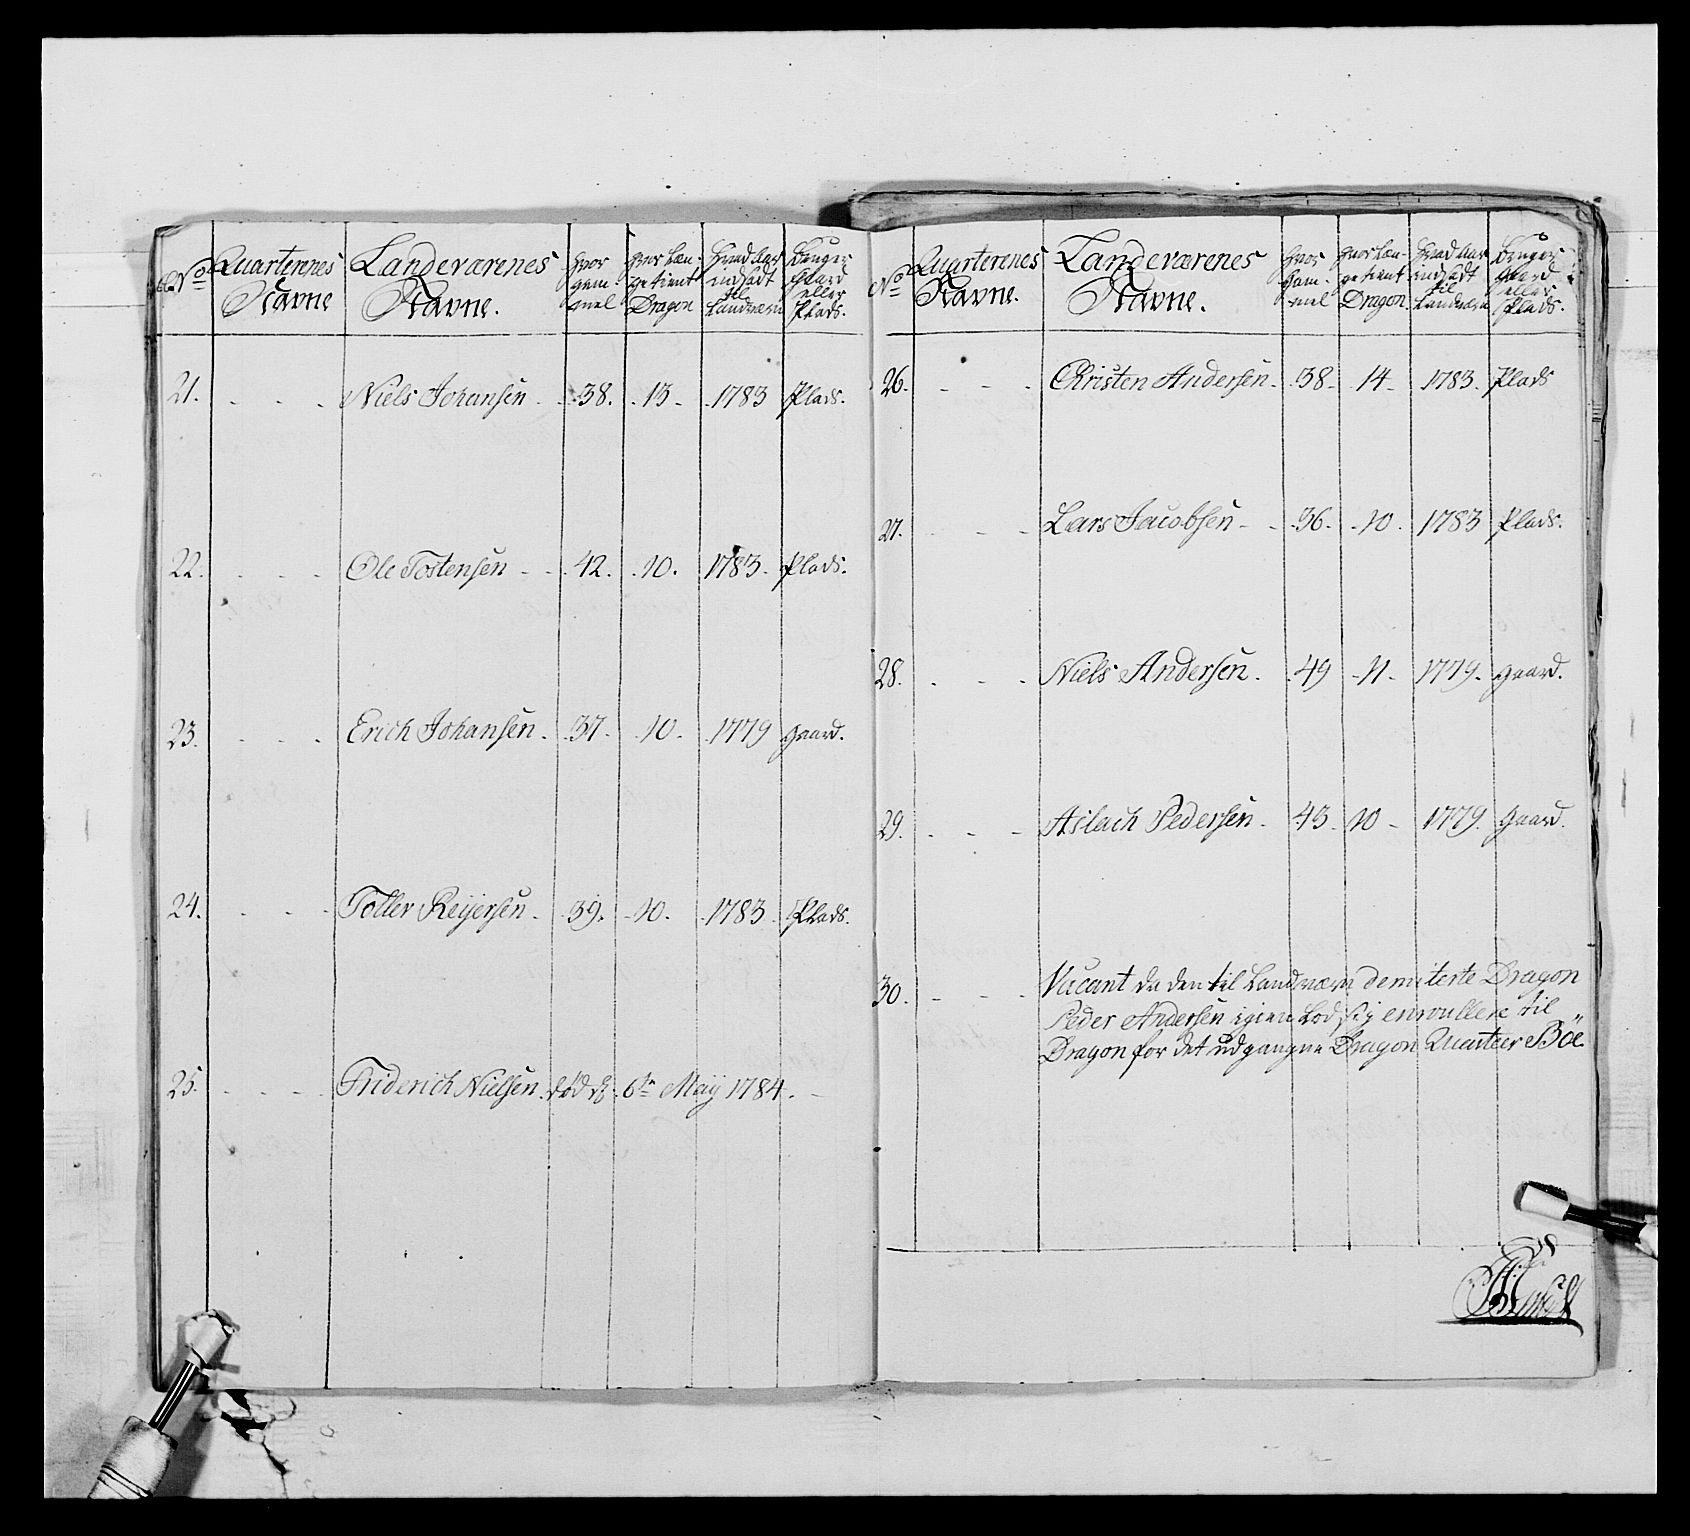 No
Quarterenes Navne
Landeværenes Navne.
Hvor gammel
Hvor længe tient Dragon
Hvad Aar indsadt til Landværn
Bruger Gaard eller Plads.
21. - - - Niels Johansen - 38. 13. 1783 Plads.
22. - - - Ole Tostensen - - 42. 10. 1783. Plads.
23. - - - Erich Johansen. 37. 10. 1779 gaard.
24. - - - Toller Reijersen. 39. 10. 1783. Plads.
25. - - - Friderich Nielsen. død d. 6te Maÿ 1784. -
No
Quarterenes Navne.
Landeværenes Navne.
Hvor gammel
Hvor længe tient Dragon.
Hvad Aar indsadt til Landværn
Bruger Gaard eller Plads.
26. - - - Christen Andersen. 38. 14. 1783. Plads
27. - - - Lars Jacobsen - - 36. 10. 1783 Plads.
28. - - - Niels Andersen. 49 11. 1779. gaard.
29. - - - Aslach Pedersen. 43. 10 - 1779. Gaard.
30. - - - Vacant da den til Landværn demiterte Dragon
Peder Andersen igien lod sig enroullere til
Dragon for det udgangne Dragon Quarteer Böe